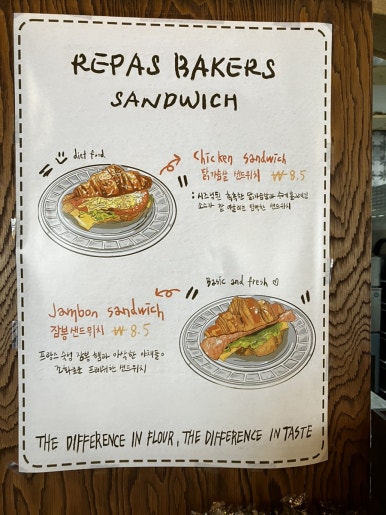 REPAS BAKERS
SANDWICH
diet food
Chicken sandwich
닭가슴살 샌드위치 ₩ 8.5
: 시즈닝된 촉촉한 닭가슴살과
소스가 잘 어울리는 담백한 샌드위치
Basic and fresh
Jambon sandwich
잠봉 샌드위치 ₩ 8.5
프랑스 숙성 잠봉 햄과 아삭한 야채들이
조화로운 프레쉬한 샌드위치
THE DIFFERENCE IN FLOUR, THE DIFFERENCE IN TASTE